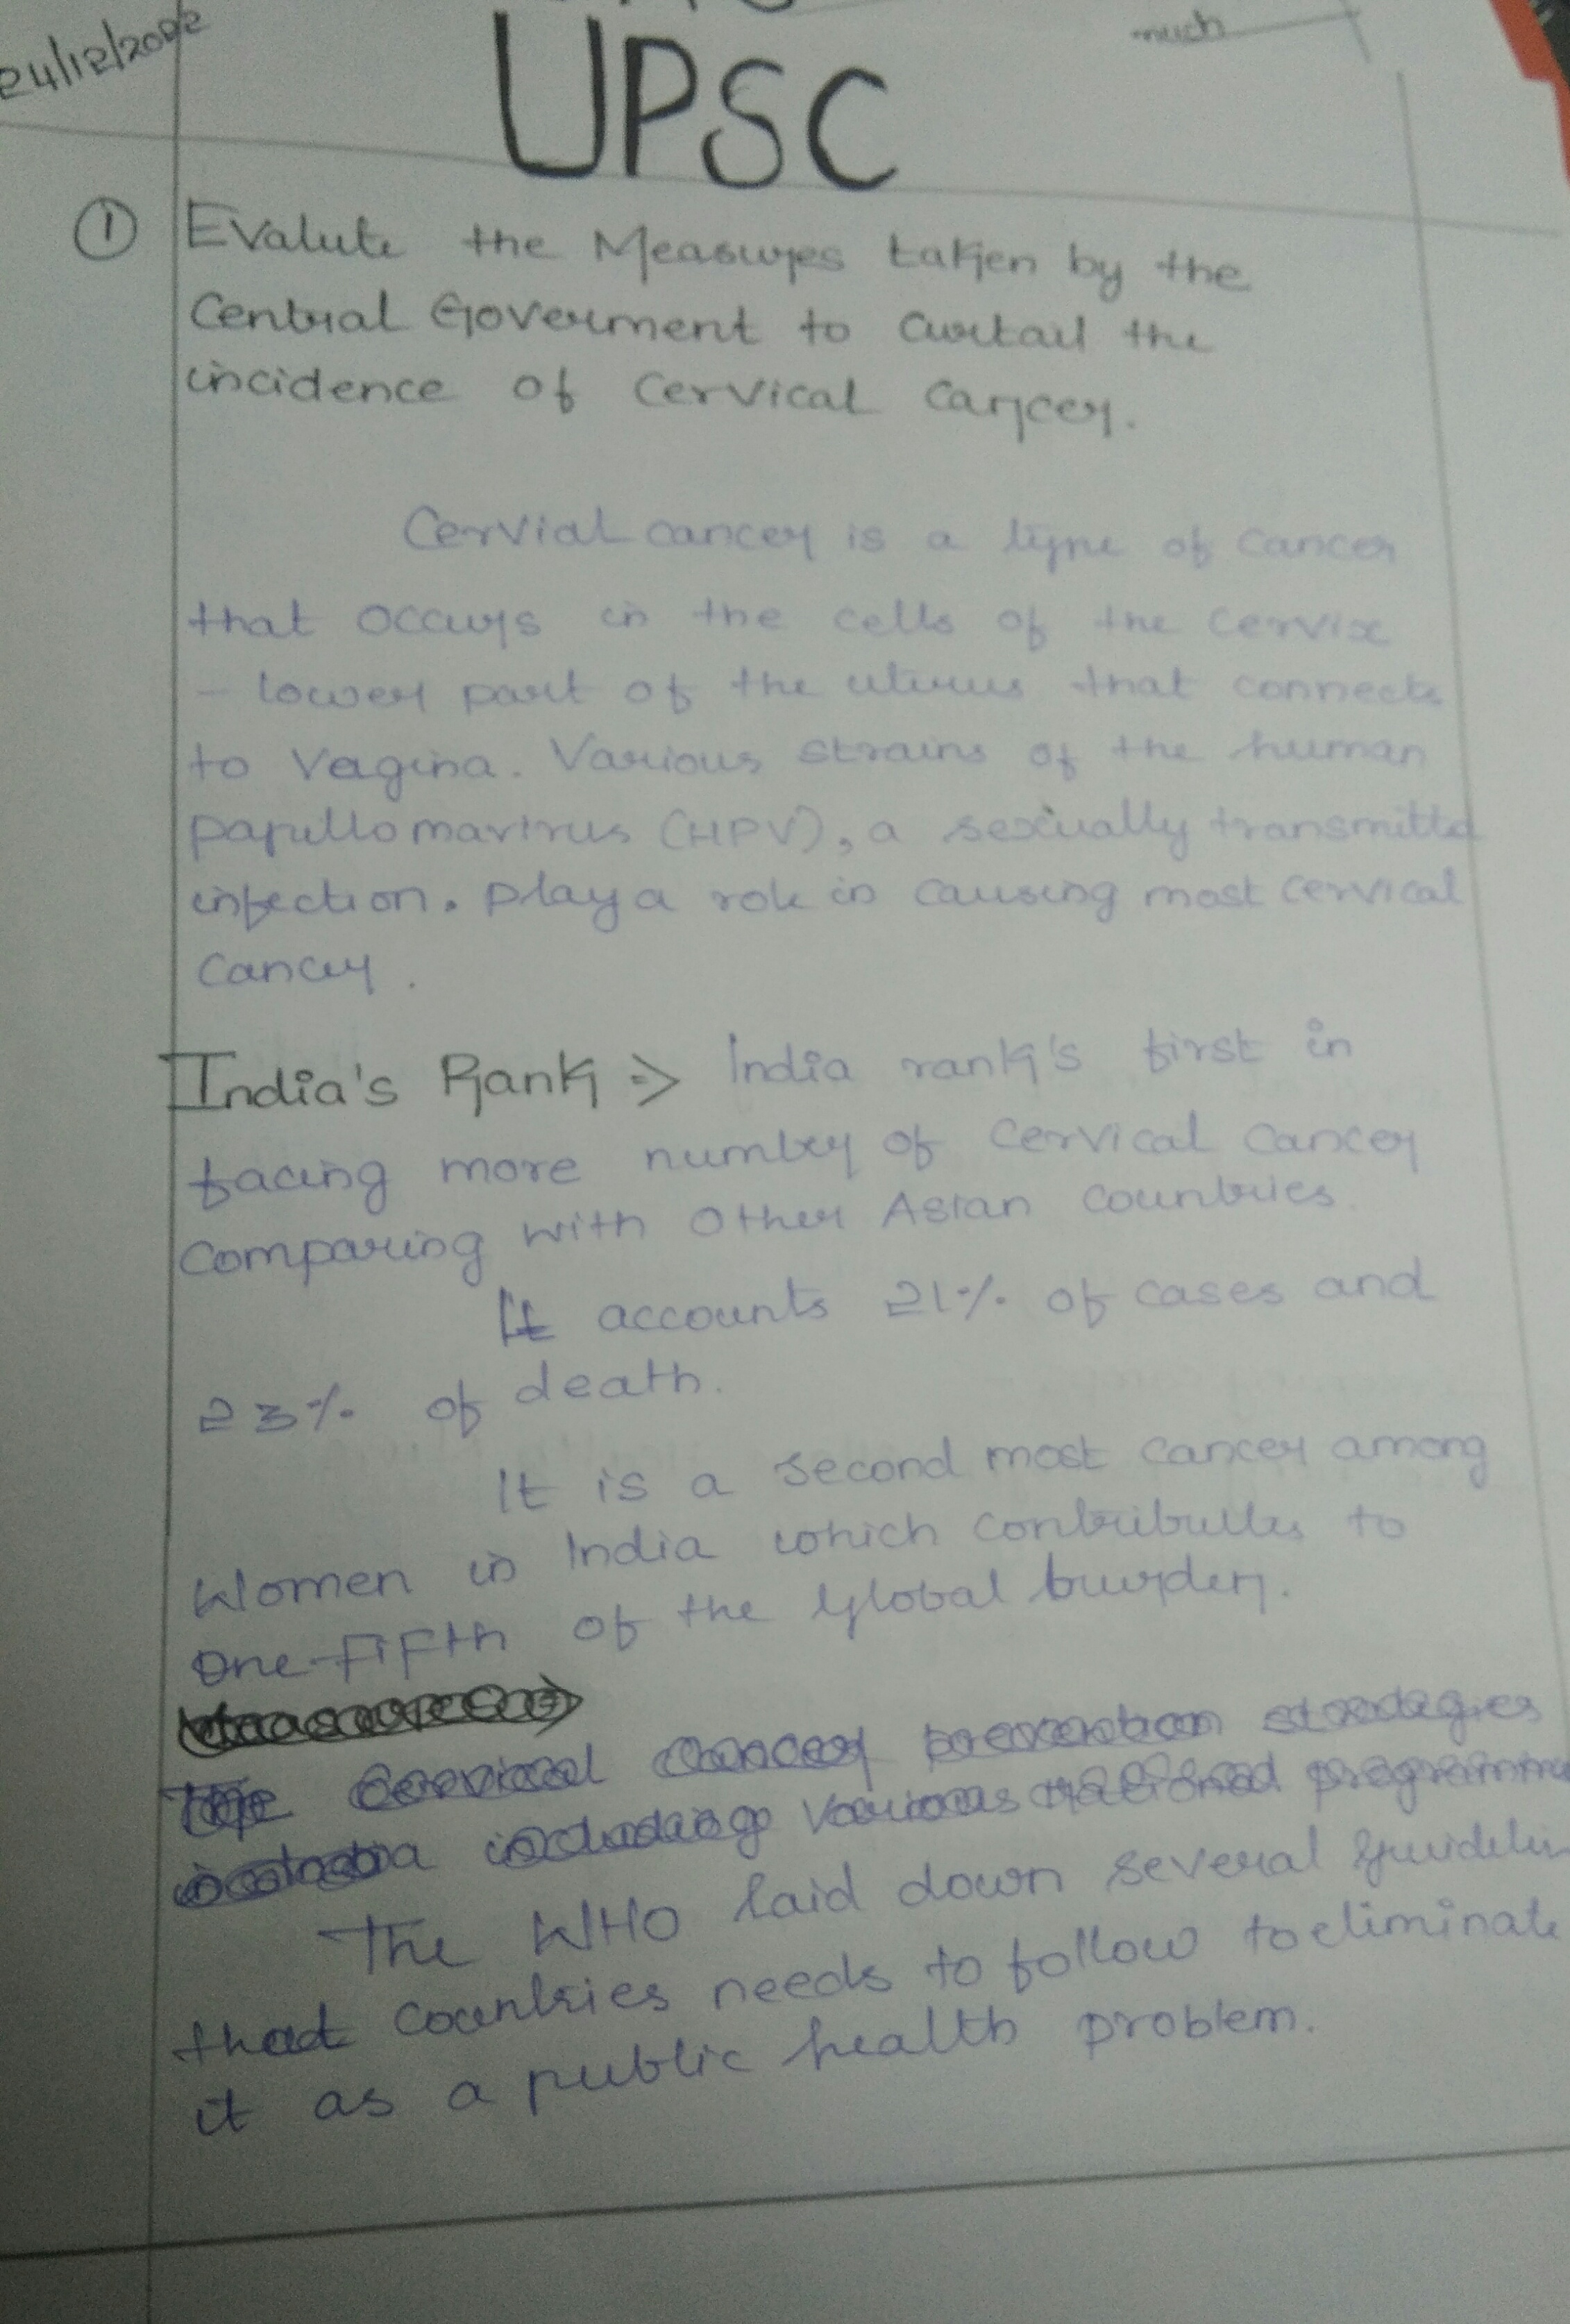 24/12/2022
much
UPSC
① Evalute the Measures taken by the
Central Goverment to curtail the
incidence of Cervical Cancer.
Cervial cancer is a type of cancer
that occurs in the cells of the cervix
- lower part of the uterus that connects
to Vagina. Various strains of the human
papillomavirus (HPV), a sexually transmitted
infection. play a role in causing most cervical
Cancer.
India's Rank => India rank's first in
facing more number of cervical cancer
Comparing with Other Asian countries.
It accounts 21% of cases and
23% of death.
It is a second most cancer among
Women in India which contributes to
One-Fifth of the global burden.
The cervical cancer prevention strategies
in India including various national programme
The WHO laid down several guidelin
that countries needs to follow to eliminate
it as a public health problem.